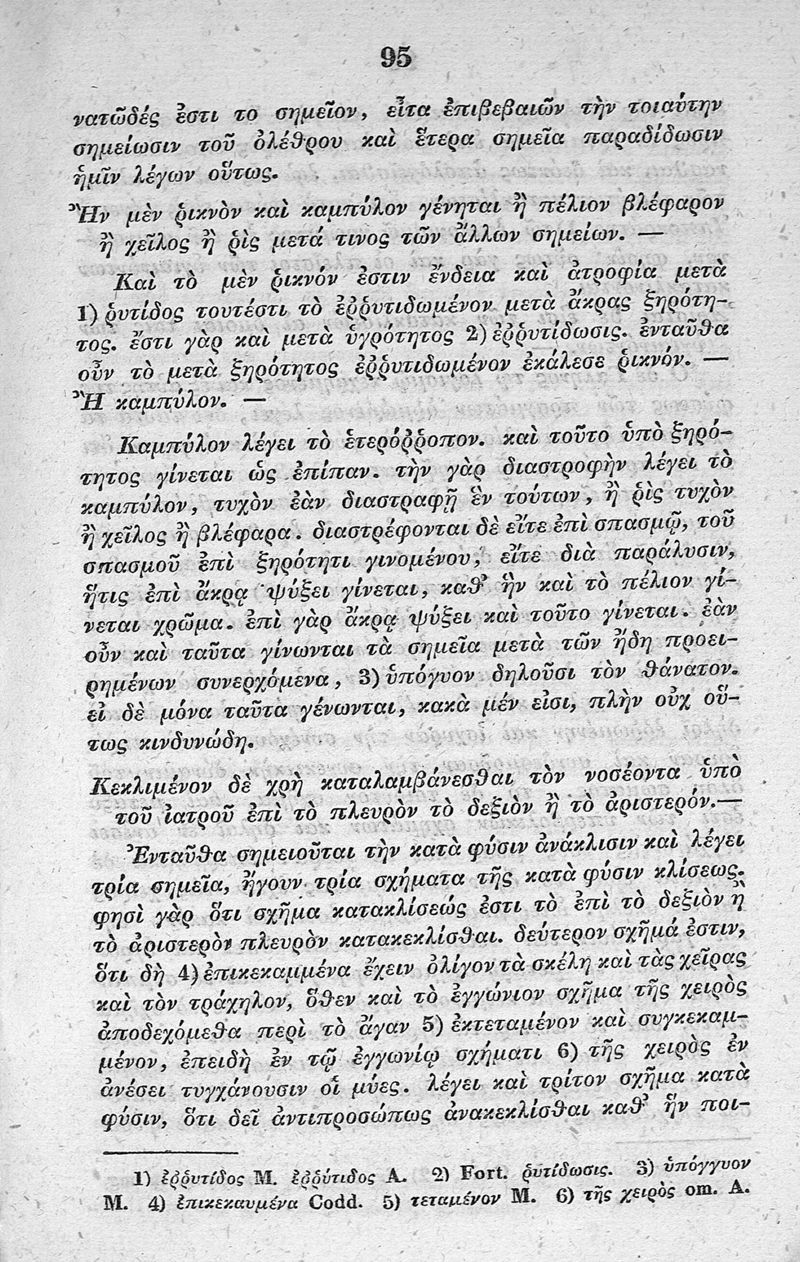 95
νατῶδές ἐστι το σημεῖον, εἶτα ἐπιβεβαιῶν τὴν τοιαύτην
σημείωσιν τοῦ ὀλέθρου καὶ ἕτερα σημεῖα παραδίδωσιν
ἡμῖν λέγων οὕτως.
Ἢν μὲν ῥικνὸν καὶ καμπύλον γένηται ἢ πέλιον βλέφαρον
ἢ χεῖλος ἢ ῥὶς μετά τινος τῶν ἄλλων σημείων. —
Καὶ τὸ μὲν ῥικνόν ἐστιν ἔνδεια καὶ ἀτροφία μετὰ
1) ῥυτίδος τουτέστι τὸ ἐῤῥυτιδωμένον μετὰ ἄκρας ξηρότη-
τος. ἔστι γὰρ καὶ μετὰ ὑγρότητος 2) ἐῤῥυτίδωσις. ἐνταῦθα
οὖν τὸ μετὰ ξηρότητος ἐῤῥυτιδωμένον ἐκάλεσε ῥικνόν. —
Ἢ καμπύλον. —
Καμπύλον λέγει τὸ ἑτερόῤῥοπον. καὶ τοῦτο ὑπὸ ξηρό-
τητος γίνεται ὡς ἐπίπαν. τὴν γὰρ διαστροφὴν λέγει τὸ
καμπύλον, τυχὸν ἐὰν διαστραφῇ ἓν τούτων, ἢ ῥὶς τυχὸν
ἢ χεῖλος ἢ βλέφαρα. διαστρέφονται δὲ εἴτε ἐπὶ σπασμῷ, τοῦ
σπασμοῦ ἐπὶ ξηρότητι γινομένου, εἴτε διὰ παράλυσιν,
ἥτις ἐπὶ ἄκρᾳ ψύξει γίνεται, καθ᾽ ἣν καὶ τὸ πέλιον γί-
νεται χρῶμα. ἐπὶ γὰρ ἄκρᾳ ψύξει καὶ τοῦτο γίνεται. ἐὰν
οὖν καὶ ταῦτα γίνωνται τὰ σημεῖα μετὰ τῶν ἤδη προει-
ρημένων συνερχόμενα, 3) ὑπόγυον δηλοῦσι τὸν θάνατον.
εἰ δὲ μόνα ταῦτα γένωνται, κακὰ μέν εἰσι, πλὴν οὐχ οὕ-
τως κινδυνώδη.
Κεκλιμένον δὲ χρὴ καταλαμβάνεσθαι τὸν νοσέοντα ὑπὸ
τοῦ ἰατροῦ ἐπὶ τὸ πλευρὸν τὸ δεξιὸν ἢ τὸ ἀριστερόν.—
Ἐνταῦθα σημειοῦται τὴν κατὰ φύσιν ἀνάκλισιν καὶ λέγει
τρία σημεῖα, ἤγουν τρία σχήματα τῆς κατὰ φύσιν κλίσεως.
φησὶ γὰρ ὅτι σχῆμα κατακλίσεώς ἐστι τὸ ἐπὶ τὸ δεξιὸν ἢ
τὸ ἀριστερὸν πλευρὸν κατακεκλίσθαι. δεύτερον σχῆμά ἐστιν,
ὅτι δὴ 4) ἐπικεκαμμένα ἔχειν ὀλίγον τὰ σκέλη καὶ τὰς χεῖρας
καὶ τὸν τράχηλον, ὅθεν καὶ τὸ ἐγγώνιον σχῆμα τῆς χειρὸς
ἀποδεχόμεθα περὶ τὸ ἄγαν 5) ἐκτεταμένον καὶ συγκεκαμ-
μένον, ἐπειδὴ ἐν τῷ ἐγγωνίῳ σχήματι 6) τῆς χειρὸς ἐν
ἀνέσει τυγχάνουσιν οἱ μύες. λέγει καὶ τρίτον σχῆμα κατὰ
φύσιν, ὅτι δεῖ ἀντιπροσώπως ἀνακεκλίσθαι καθ᾽ ἣν ποι-
1) ἐῤῥυτίδος M. ἐῤῥύτιδος A. 2) Fort. ῥυτίδωσις. 3) ὑπόγγυον
M. 4) ἐπικεκαυμένα Codd. 5) τεταμένον M. 6) τῆς χειρὸς om. A.